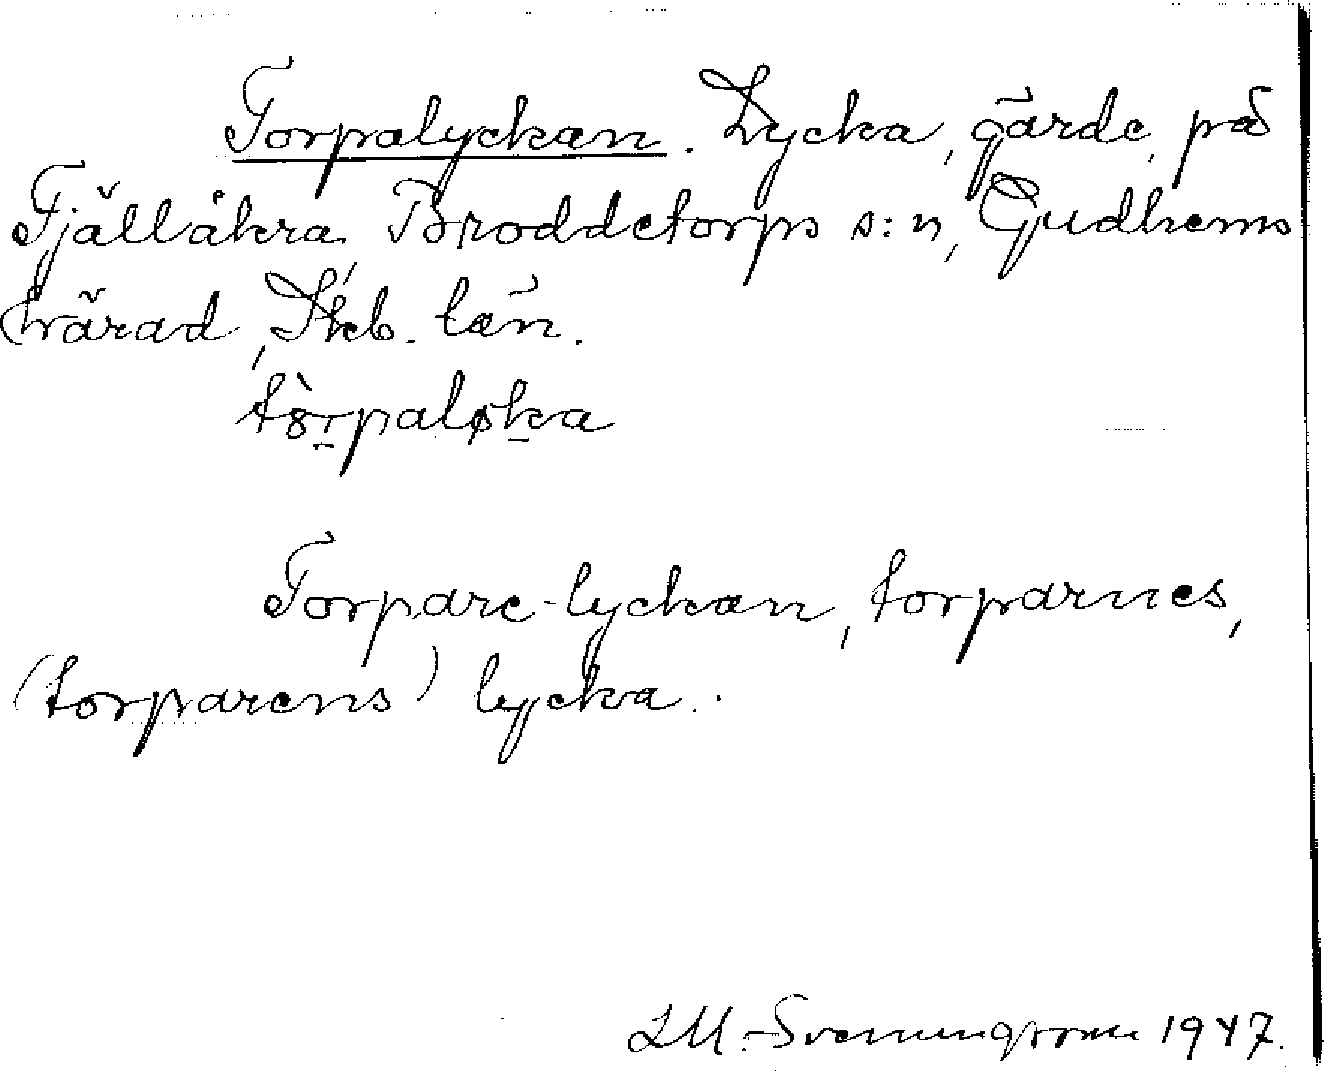 Torpalyckan. Lycka, gärde, på
Fjällåkra, Broddetorps s:n, Gudhems
härad, Skb. län.
tòrpaløka
Torpare-lyckan, torparnes,
(torparens) lycka.
LM.-Svenningsson 1947.